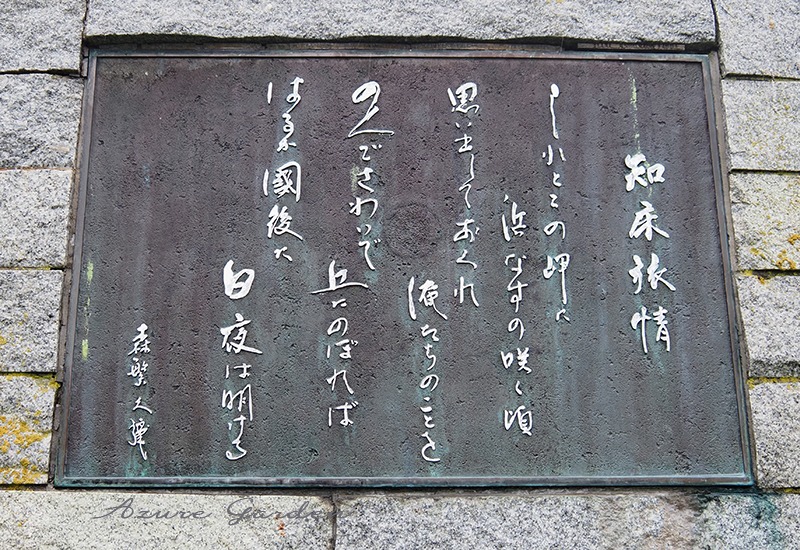 知床旅情
しれとこの岬に
浜なすの咲く頃
思い出しておくれ
俺たちのことを
のんでさわいで
丘にのぼれば
はるか國後に
白夜は明ける
森繁久彌
Azure Garden